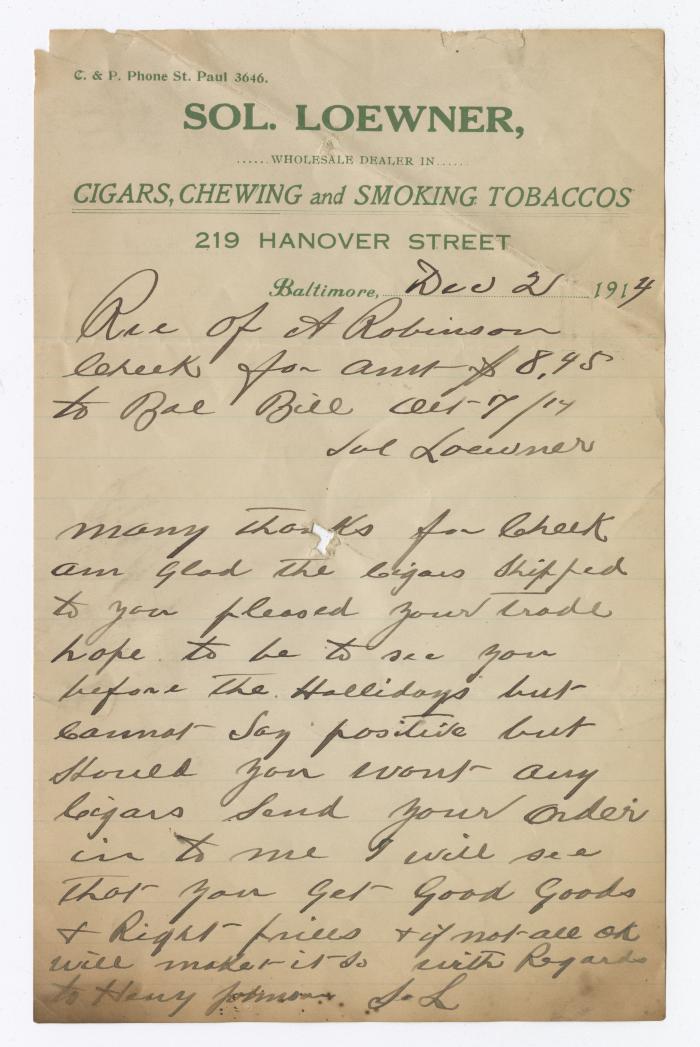 C. & P. Phone St. Paul 3646.
SOL. LOEWNER,
......WHOLESALE DEALER IN......
CIGARS, CHEWING and SMOKING TOBACCOS
219 HANOVER STREET
Baltimore, Dec 2 1914
Rec of A Robinson
Check for amt $ 8,45
to Bal Bill Oct 7/14
Sol Loewner
many thanks for Check
am glad the Cigars Shipped
to you pleased your trade
hope to be to see you
before the Hallidays but
cannot Say positive but
Should you want any
Cigars Send your order
in to me I will see
that you Get Good Goods
& Right prices & if not all ok
will make it so with Regards
to Henry Johnson S L